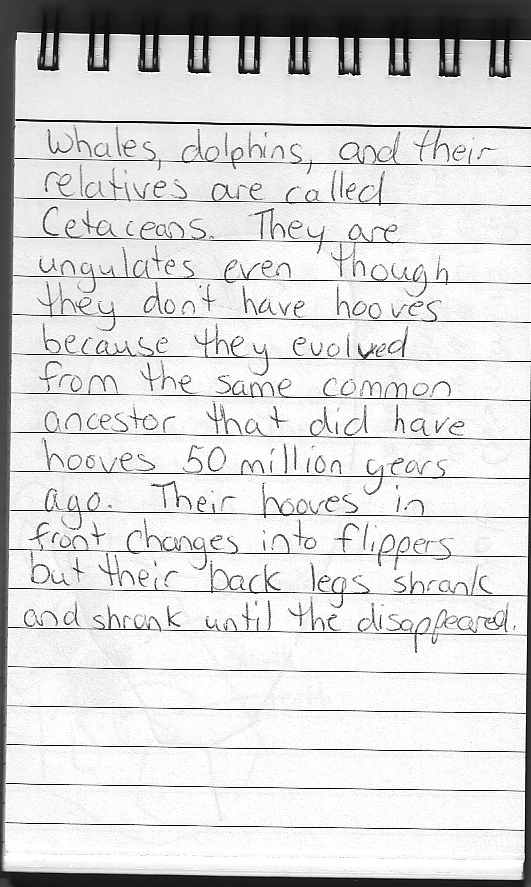 Whales, dolphins, and their
relatives are called
Cetaceans. They are
ungulates even though
they don't have hooves
because they evolved
from the same common
ancestor that did have
hooves 50 million years
ago. Their hooves in
front changes into flippers
but their back legs shrank
and shrank until the disappeared.